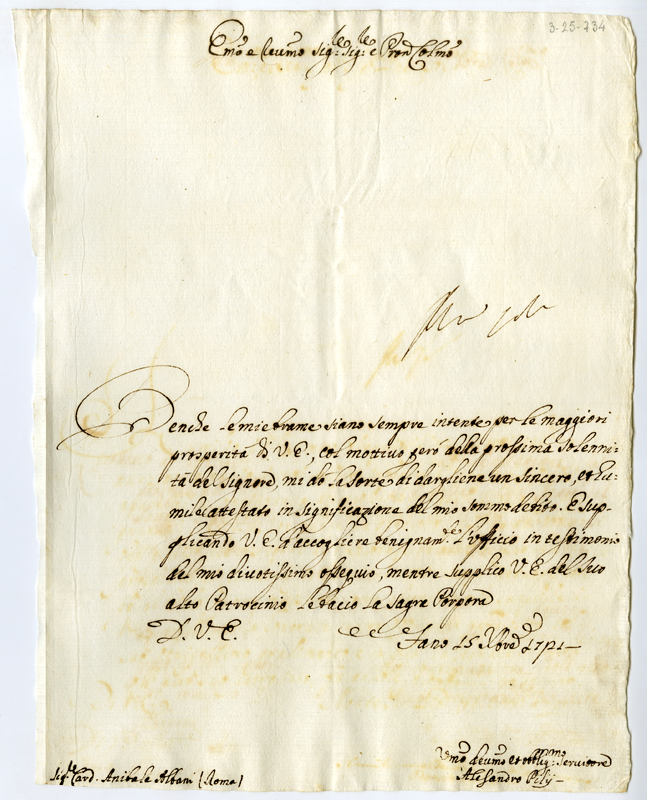 3-25-734
Emo e Reumo Sig:re Sig:re e Pron Colmo
Benche le mie brame siano sempre intente per le maggiori
prosperità di V. E., col mottivo però della prossima solenni-
tà del Signore, mi do la sorte di dargliene un sincero, et hu-
mile attestato in significazione del mio sommo debito. E sup-
plicando V. E. d'accogliere benignam.te l'ufficio in testimonio
del mio divotissimo ossequio, mentre supplico V. E. del suo
alto Patrocinio le bacio la sagra Porpora
D. V. E.
Fano 15 Nove 1721
Umo deumo et obblig:mo servitore
Sig.r Card. Anibale Albani (Roma)
Alesandro